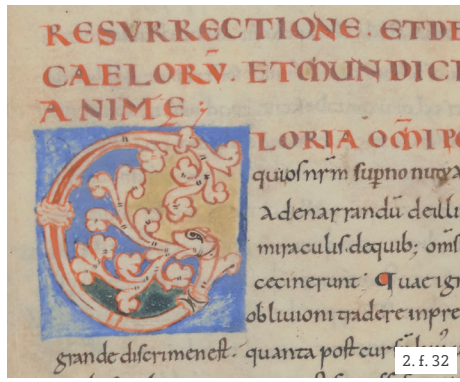 RESVRRECTIONE · ET DE
CAELORV̄ · ET MUNDI CI
ANIME ;
LORIA OM̄IPO
quiosnr̄m
Adenarrandū deilli
miraculis · dequib; om̄s
cecinerunt · Quae igr
obliuioni tradere inpre
grande discrimen est · quanta post cursū
2. f. 32